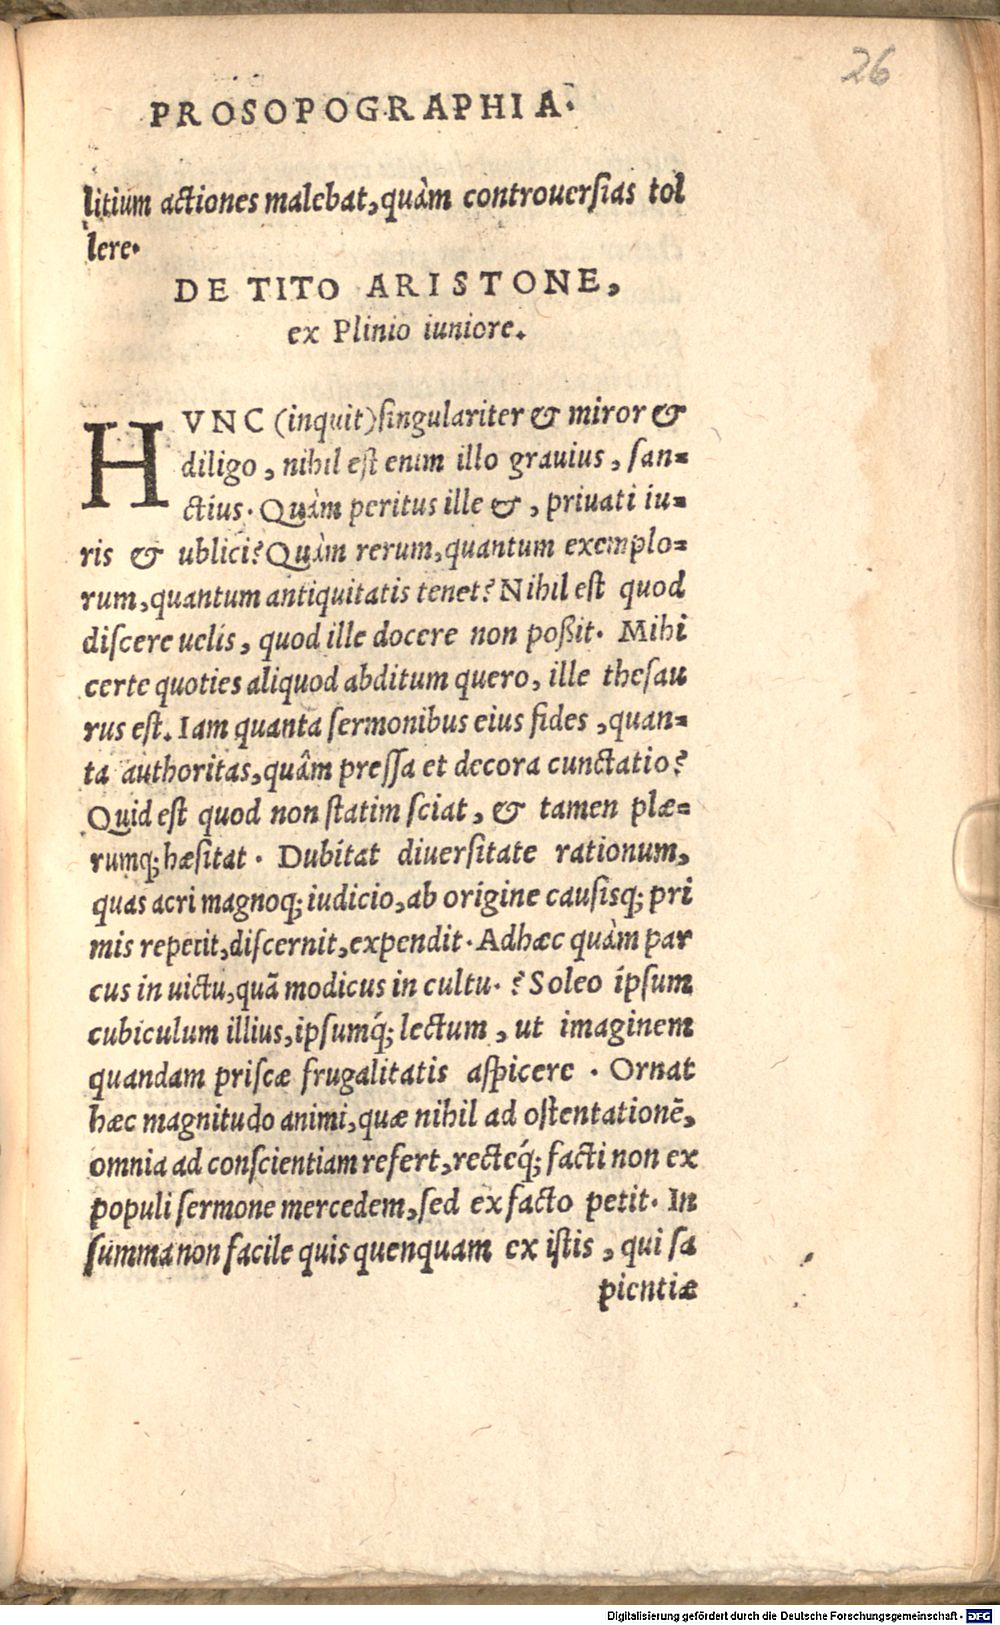 26
PROSOPOGRAPHIA.
litium actiones malebat,quàm controuersias tol
lere.
DE TITO ARISTONE,
ex Plinio iuniore.
HVNC (inquit)singulariter & miror &
diligo, nihil est enim illo grauius, san=
ctius. Quàm peritus ille &, priuati iu=
ris & ublici? Quàm rerum,quantum exemplo=
rum,quantum antiquitatis tenet? Nihil est quod
discere uelis, quod ille docere non poßit. Mihi
certe quoties aliquod abditum quero, ille thesau
rus est. Iam quanta sermonibus eius fides,quan=
ta authoritas,quâm pressa et decora cunctatio?
Quid est quod non statim sciat, & tamen plæ=
rumq; hæsitat. Dubitat diuersitate rationum,
quas acri magnoq; iudicio,ab origine causisq; pri
mis reperit,discernit,expendit. Adhæc quàm par
cus in uictu,quã modicus in cultu.? Soleo ipsum
cubiculum illius,ipsumq́; lectum, ut imaginem
quandam priscæ frugalitatis aspicere. Ornat
hæc magnitudo animi,quæ nihil ad ostentationẽ,
omnia ad conscientiam refert,recteq́; facti non ex
populi sermone mercedem,sed ex facto petit. In
summa non facile quis quenquam ex istis, qui sa
pientiæ
Digitalisierung gefördert durch die Deutsche Forschungsgemeinschaft - DFG